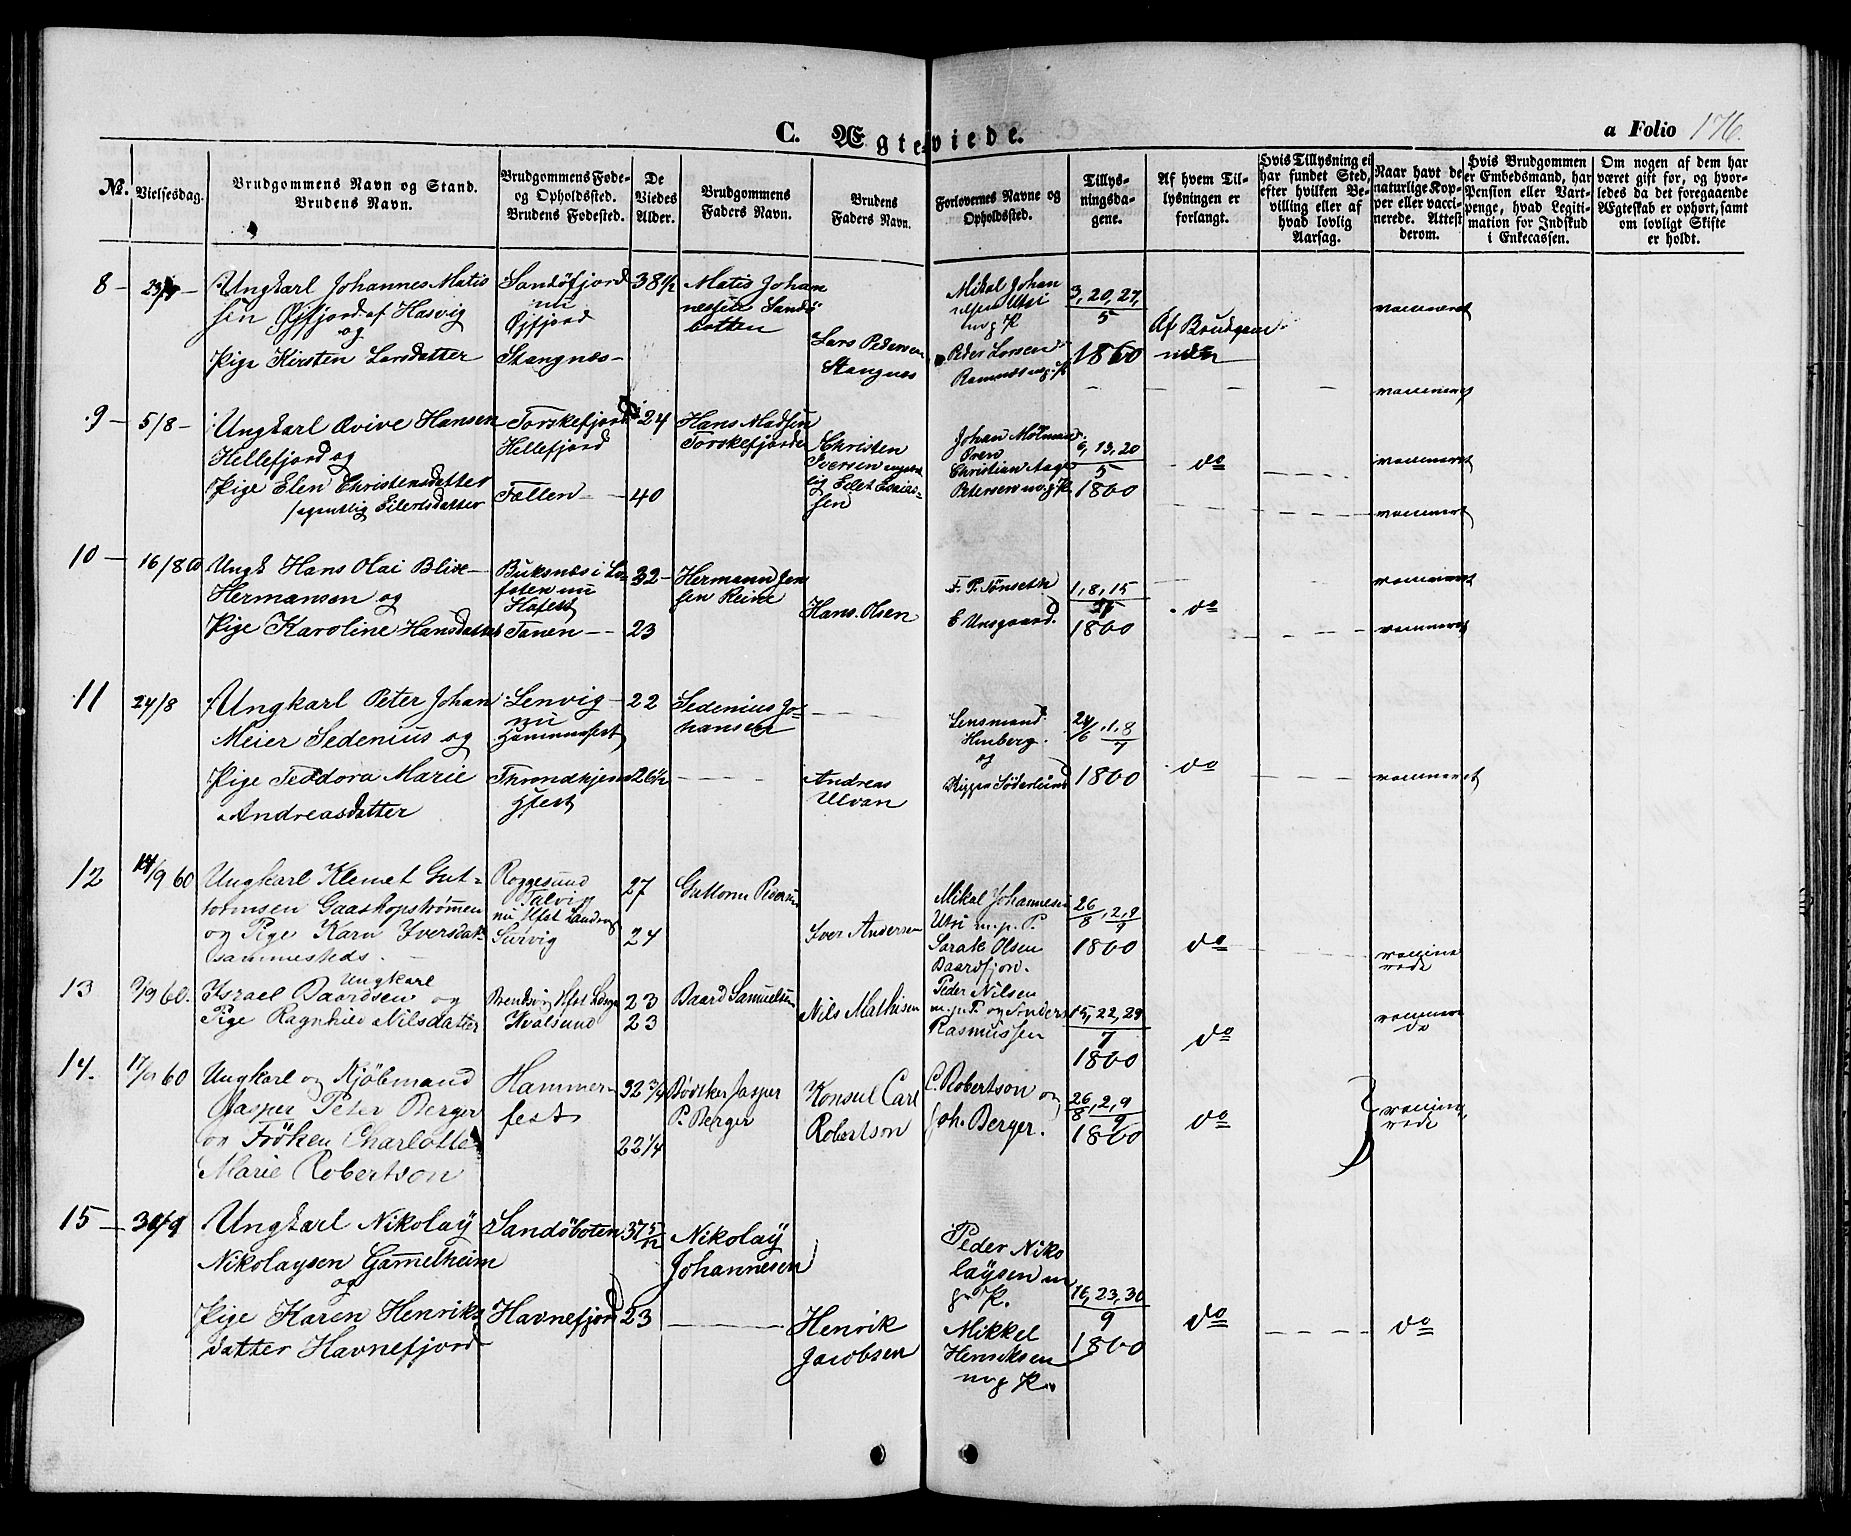 C. Ægteviede.
a Folio 176.
No.
Vielsesdag.
Brudgommens Navn og Stand.
Brudens Navn.
Brudgommens Føde-
og Opholdssted.
Brudens Fødested.
De
Viedes
Alder.
Brudgommens
Faders Navn.
Brudens
Faders Navn.
Forlovernes Navne og
Opholdssted.
Tillys-
ningsda-
gene.
Af hvem Til-
lysningen er
forlangt.
Hvis Tillysning ei
har fundet Sted,
efter hvilken Be-
villing eller af
hvad lovlig
Aarsag.
Naar havt de
naturlige Kop-
per eller vacci-
nerede. Attest
derom.
Hvis Brudgommen
er Embedsmand, har
Pension eller Vart-
penge, hvad Legiti-
mation for Indskud
i Enkecassen.
Om nogen af dem har
været gift før, og hvor-
ledes da det foregaaende
Ægteskab er ophørt, samt
om lovligt Skifte
er holdt.
8 –
Ungkarl Johannes Matis
sen Øjfjord af Hasvig
og
Pige Kirsten Larsdatter
Sandøfjord
nu
Øjfjord
Stangnæs –
38 1/2
Matis Johan
nessen Sandø
botten
Lars Pedersen
Stangnæs
Mikal Johan
Utsi
m p P
Peder Larsen
3, 20, 27,
5
1860
Af Brudgom
men
vaccineret
vaccineret
9 –
5/8 –
Ungkarl Ovive Hansen
Hellefjord og
Pige Elen Christensdatter
egentlig Eilertsdatter
Torskefjord
Hellefjord
Fællen –
24
40
Hans Madsen
Torskefjorden
Christen
Iversen egent
lig Eilet Esaias-
sen
Johan
Christian Aage
Petersen m.p. P.
6, 13, 20
5
1860
do
vaccineret
vaccineret
10 –
16/8 60
Ungk Hans Olai Blix
Hermansen og
Pige Karoline Hansdatter
Buksnæs i Lo-
foten nu
Hafest
Tanen –
32 –
23
Hermann Jen
sen Reine
Hans Olsen
F. P. Tønseth
E Unsgaard.
1, 8, 15
1860
do
vaccineret
vaccineret
11
24/8
Ungkarl Peter Johan
Meier Sedenius og
Pige Teodora Marie
Andreasdatter
Lenvig –
nu
Hammerfest
Throndhjem
Hfest
22
26 1/2
Sedenius Jo-
hansen
Andreas
Ulvan
Lensmand
og
Søderlund
24/6, 1, 8
7
1860
do
vaccineret
12
14/9 60
Ungkarl Klemet Gut-
tormsen Gaashopstrømmen
og Pige Karn Iversdat
sammesteds.
Roggesund
Talvig
nu Hfst Landsogn
Survig
27
24
Guttorm Pedersen
Iver Andersen
Mikal Johannesen
Utsi m. p. P.
Sarak Olsen
Baardfjord.
26/8, 2, 9
9
1860
do
vaccine
rede
13
9/9 60.
Ungkarl
Israel Baardsen og
Pige Ragnhild Nilsdatter
Kvalsund
23
23
Baard Samuelsen
Nils Mathisen
Peder Nilsen
m. p. P. og Anders
Rasmussen
15, 22, 29
7
1860
do
vaccinere
de
14.
17/9 60
Ungkarl og Kjøbmand
Jasper Peter Berger
og Frøken Charlotte
Marie Robertson
Hammer-
fest
32 3/4
22 1/4
Bødtker Jasper
P. Berger
Konsul Carl
Robertson
C. Robertson og
Joh. Berger.
26/8, 2, 9
9
1860
do
vaccine
rede
15 –
30/9
Ungkarl Nikolay
Nikolaysen Gamelheim
og
Pige Karen Henriks
datter Havnefjord
Sandøboten
Havnefjord
37 5/12
23
Nikolay
Johannesen
Henrik
Jacobsen
Peder Niko
laysen m
p. P.
Mikkel
Henriksen
m p P.
16, 23, 30
9
1860
do
do